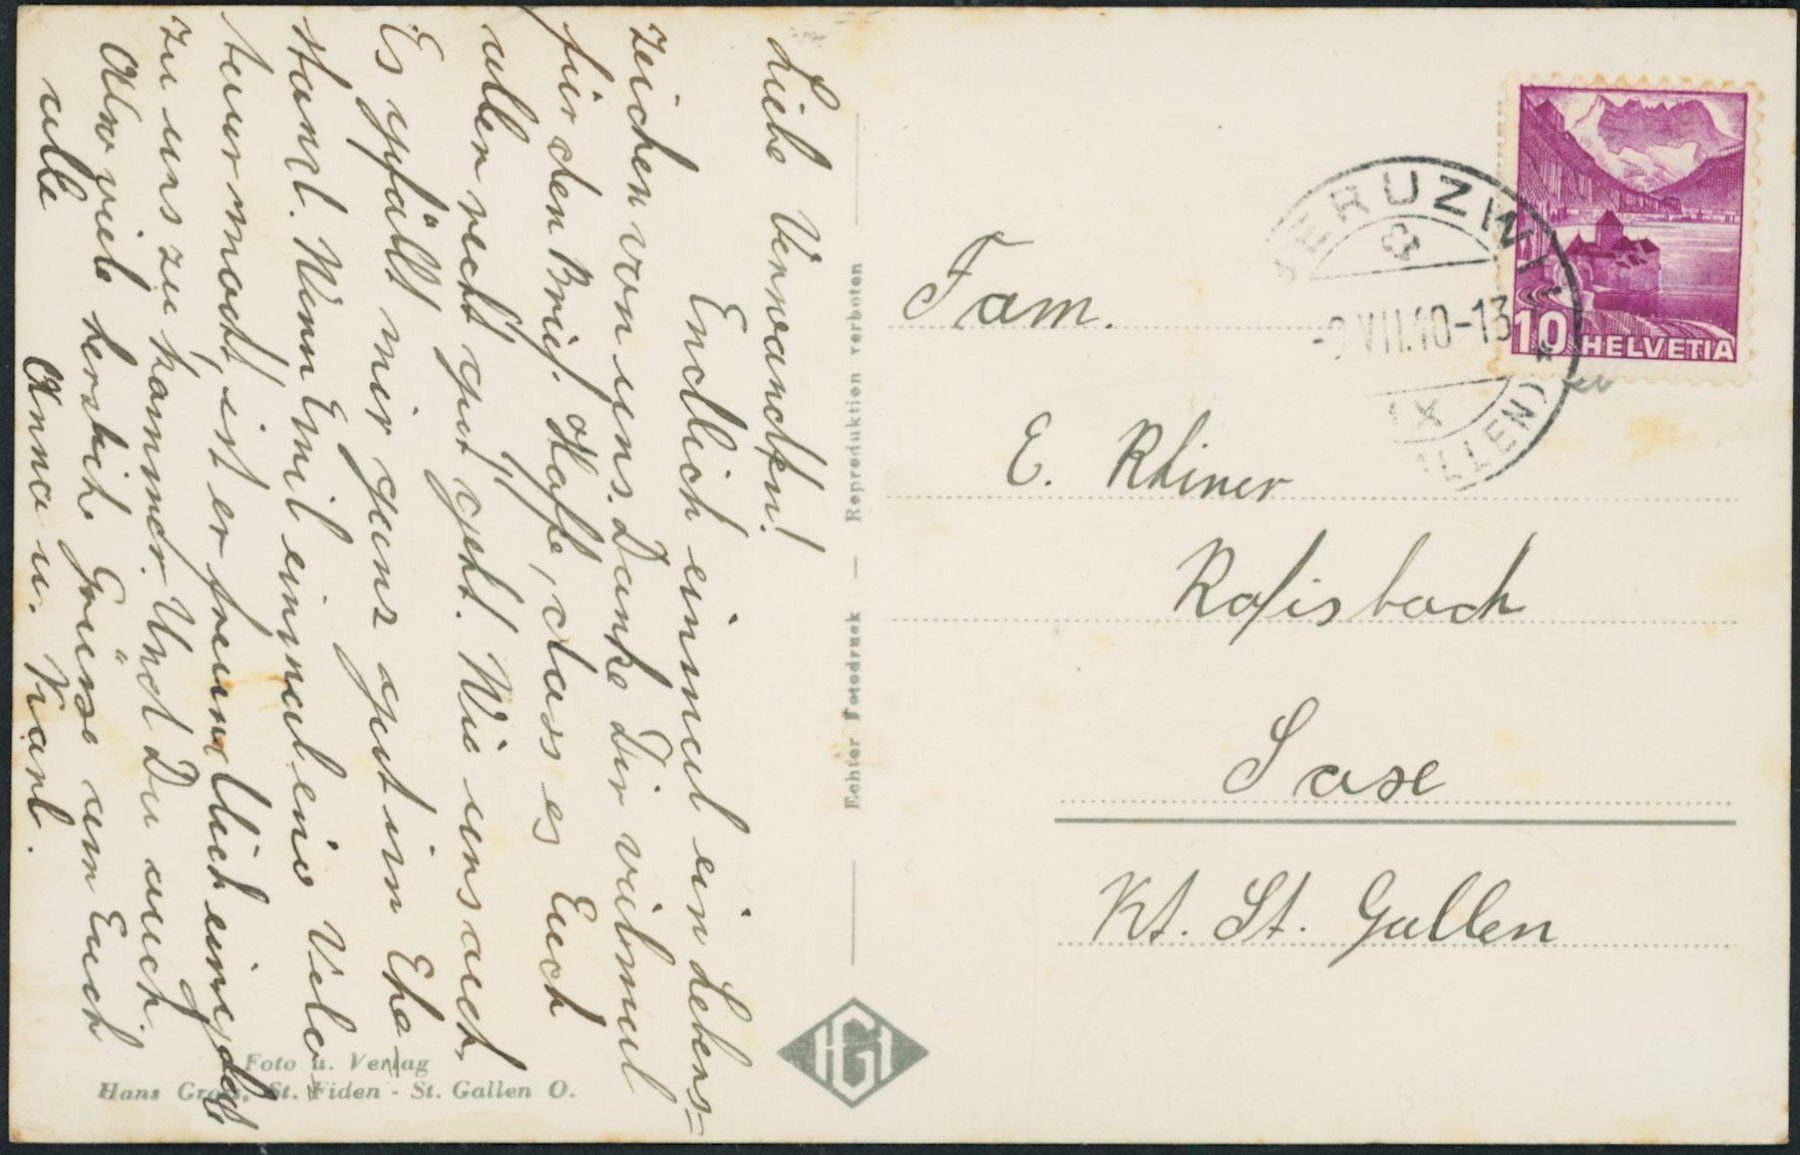 Liebe Verwandten!
Endlich einmal ein Lebens=
zeichen von uns. Danke Dir vielmal
für den Brief. Hoffe, dass es Euch
allen recht gut geht. Wie uns auch.
Es gfällt mir ganz gut im Ehe-
stand. Wenn Emil einmal eine Velo-
tour macht, ist er freundlich eingeladen
zu uns zu kommen. Und Du auch.
Also viele herzlich Grüsse an Euch
alle
Anna u. Karl.
Foto u. Verlag
Hans Gross, St. Fiden - St. Gallen O.
Echter Fotodruck — Reproduktion verboten
HGI
Fam.
E. Rhiner
Rofisbach
Saxe
Kt. St. Gallen
ERUZWI
-9 VII.40-13
IX
ALLEN)
10 HELVETIA